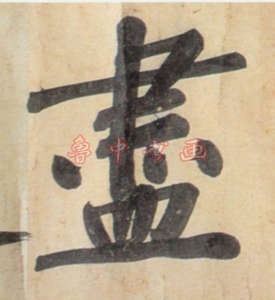 盡
鲁中书画